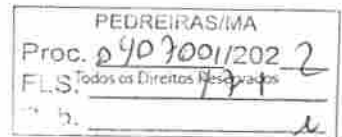 PEDREIRAS/MA
Proc. 0407001/2022
FLS. 171
Todos os Direitos Reservados